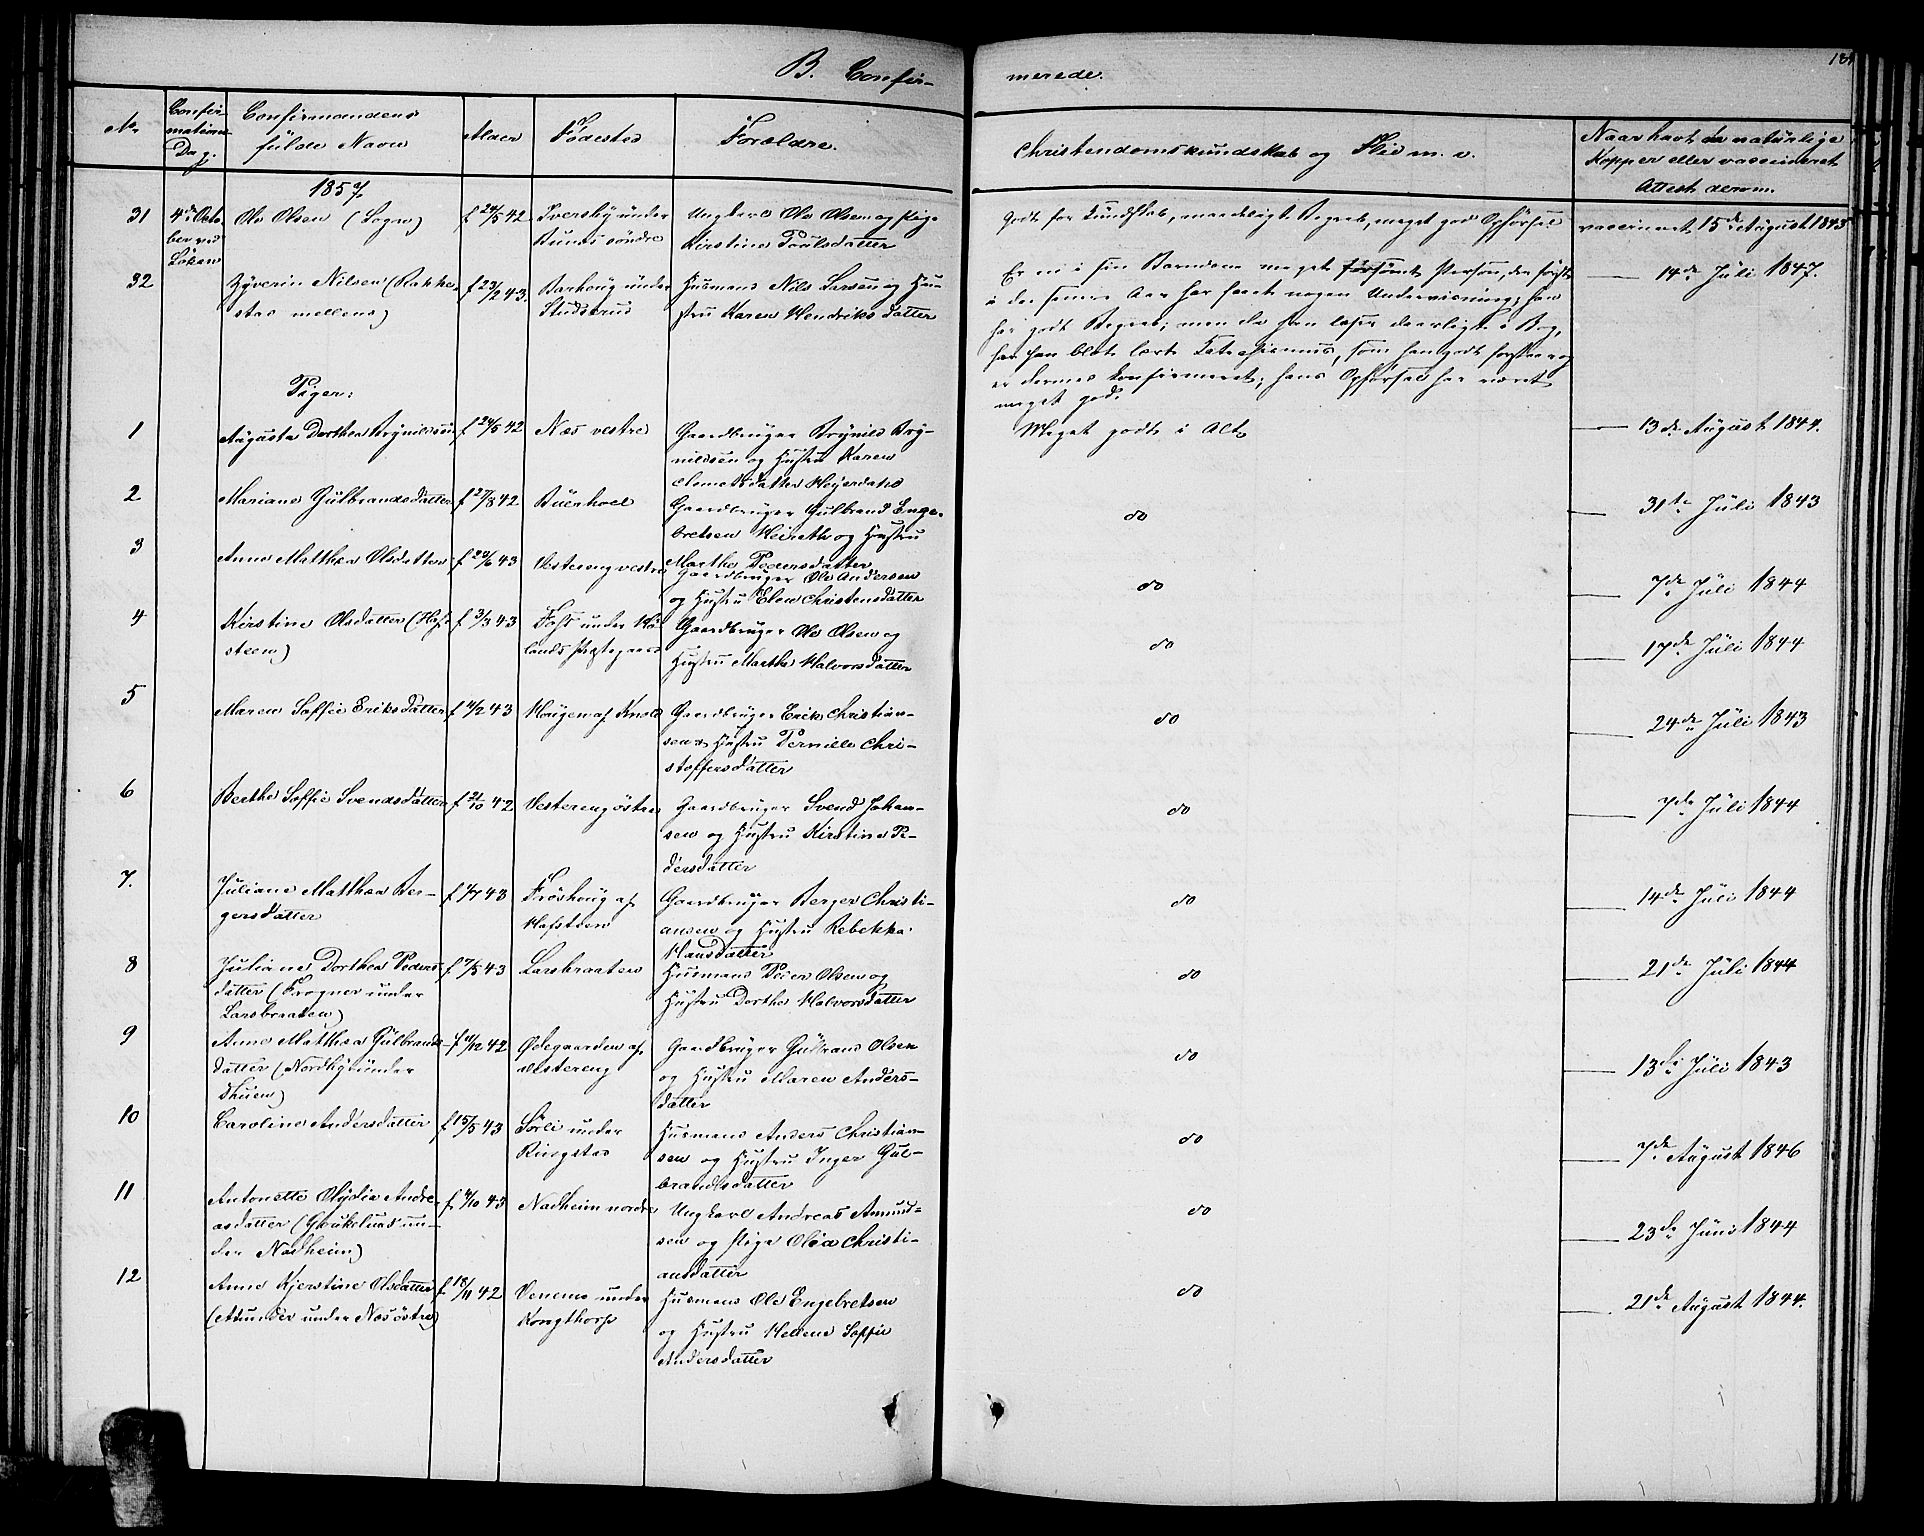 B. Confir-
merede.
184
No
Confir-
mations
Dag.
Confirmandens
fulde Navn
Alder
Fødested
Forældre.
Christendomskundskab og Flid m. v.
Naar havt de naturlige
Kopper eller vaccineret
Attest derom.
1857.
31
4de Octo-
ber ved
Løken
Ole Olsen (Sogn)
f 24/5 42
Iversby under
Bunes søndre
Ungkarl Ole Olsen og Pige
Kirstine Poulsdatter
Godt for Kundskab, maadeligt Begreb, meget god Opførsel
vaccineret 15de August 1843
32
Zyverin Nilsen (Rakke-
stad mellem)
f 23/2 43.
Barhoug under
Studsrud
Husmand Nils Larsen og Hu-
stru Karen Hendriksdatter
Er en i sin Barndom meget forsømt Person, der først
i de senere Aar har faaet nogen Underviisning; han
har godt Begreb; men da han læser daarligt i Bog,
har han blot lært Katechismus, som han godt forstaar og
er dermed konfirmeret; hans Opførsel har været
meget god.
14de Juli 1847.
Piger:
1
Augusta Dorthea Brynildsen
f 24/5 42
Næs vestre
Gaardbruger Brynild Bry-
nildsen og Hustru Karen
Clemetsdatter Høyerdahl
Meget godt i Alt
13de August 1844.
2
Mariane Gulbrandsdatter
f 27/8 42
Buerhoel
Gaardbruger Gulbrand Enge-
bretsen Heireth og Hustru
Marthe Pedersdatter
do
31te Juli 1843
3
Anne Matthea Olsdatter
f 20/6 43
Vestereng vestre
Gaardbruger Ole Andersen
og Hustru Elen Christensdatter
do
7de Juli 1844
4
Kirstine Olsdatter (Haf-
steen)
f 3/3 43
Foss under Hø-
lands Præstegaard
Gaardbruger Ole Olsen og
Hustru Marthe Halvorsdatter
do
17de Juli 1844
5
Maren Soffie Eriksdatter
f 4/2 43
Hougen af Knold
Gaardbruger Erik Christian-
sen og Hustru Pernille Chri-
stoffersdatter
do
24de Juli 1843
6
Berthe Soffie Svendsdatter
f 21/10 42
Vestereng østre
Gaardbruger Svend Johan-
sen og Hustru Kirstine Pe-
dersdatter
do
7de Juli 1844
7.
Juliane Matthea Ber-
gersdatter
f 7/7 43
Frøshoug af
Hafsteen
Gaardbruger Berger Christi-
ansen og Hustru Rebekka
Hansdatter
do
14de Juli 1844
8
Juliane Dorthea Peders-
datter (Frogner under
Larsbraaten)
f 7/5 43
Larsbraaten
Husmand Peder Olsen og
Hustru Dorthe Halvorsdatter
do
21de Juli 1844
9
Anne Matthea Gulbrands-
datter (Nordby under
Thuen)
f 4/12 42
Ødegaarden af
Vestereng
Gaardbruger Gulbrand Olsen
og Hustru Maren Anders-
datter
do
13de Juli 1843
10
Caroline Andersdatter
f 15/5 43
Sørli under
Ringstad
Husmand Anders Christian-
sen og Hustru Inger Gul-
brandsdatter
do
7de August 1846
11
Antonette Olydia Andre-
asdatter (Goukelund un-
der Nadheim)
f 4/10 43
Nadheim nordre
Ungkarl Andreas Amund-
sen og Pige Olea Christi-
ansdatter
do
23de Juni 1844
12
Anne Kjerstine Olsdatter
(Amunder under Næs østre)
f 18/11 42
Venemo under
Kongthorp
Husmand Ole Engebretsen
og Hustru Helene Soffie
Andersdatter
do
21de August 1844.